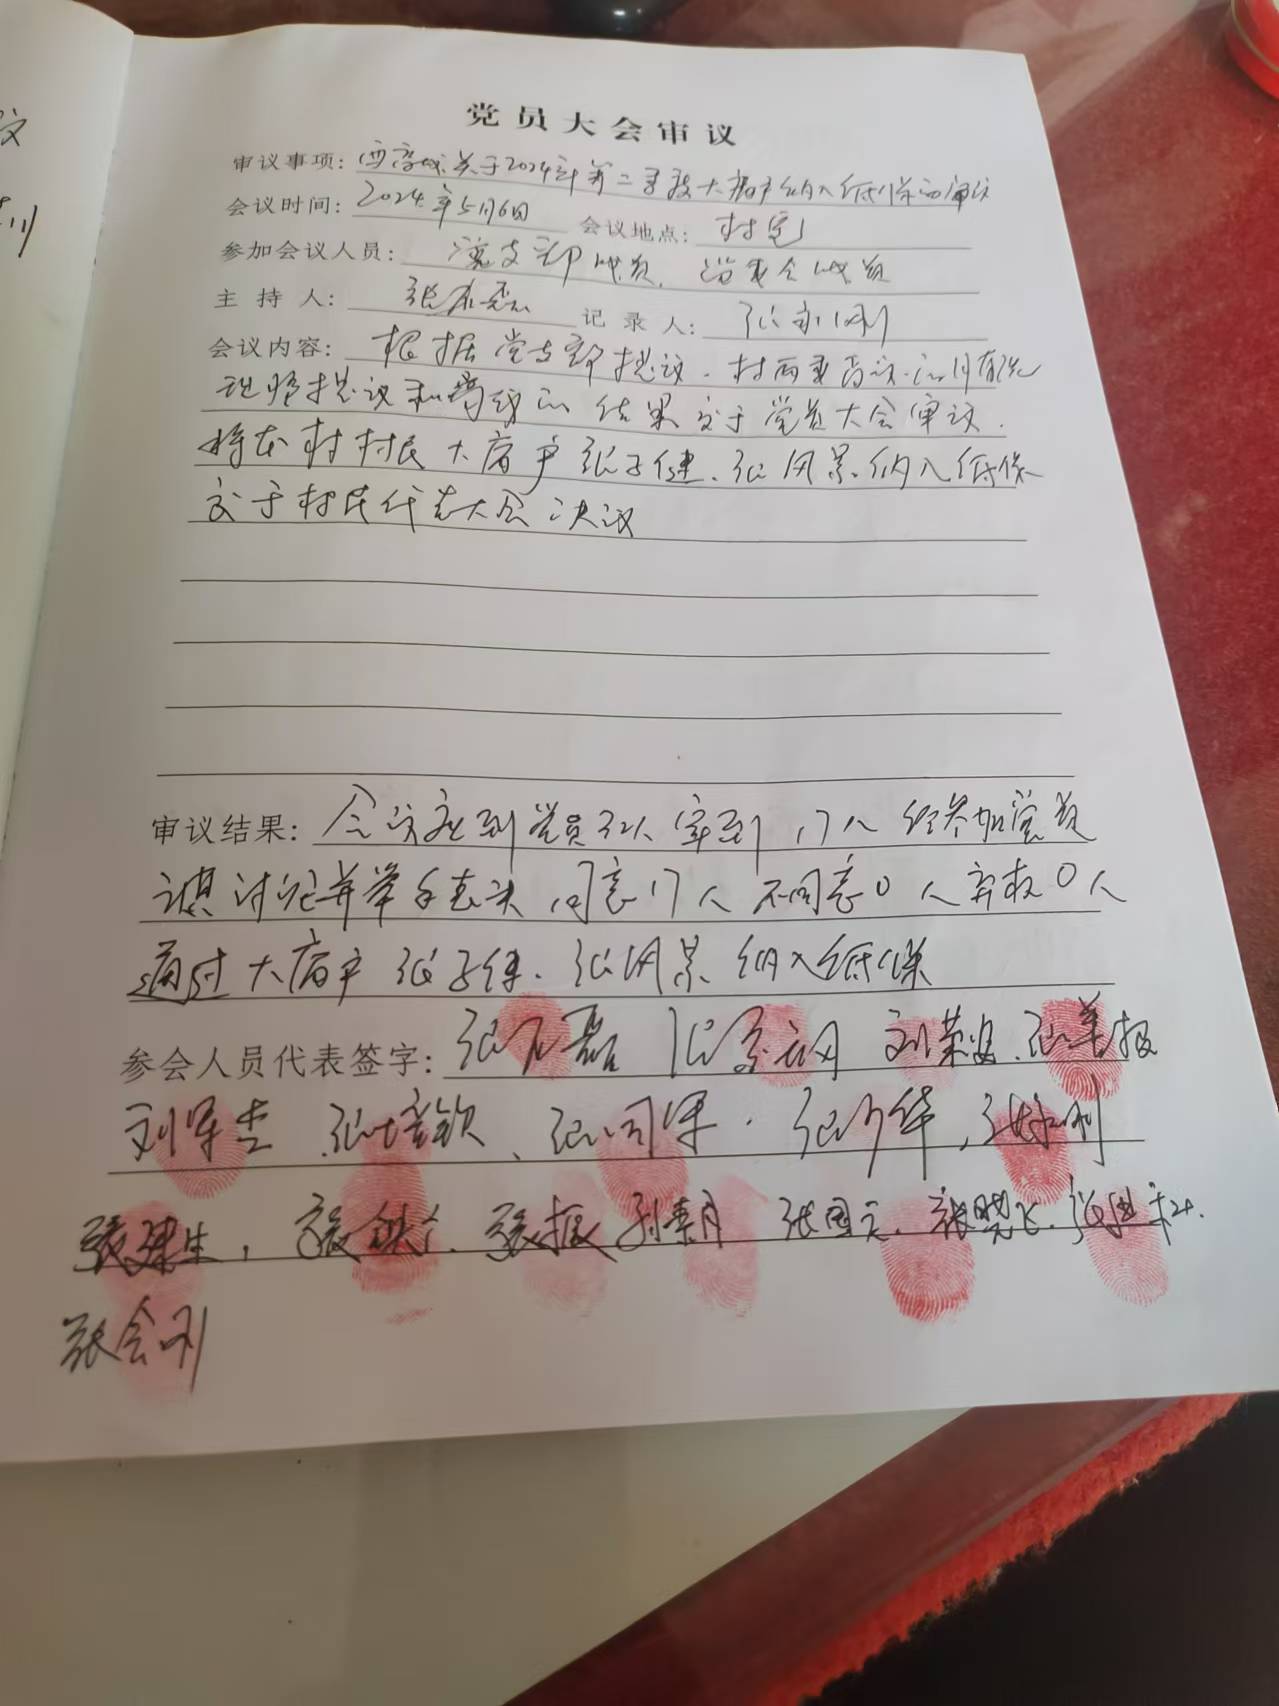 党员大会审议
审议事项: 西高城关于2024年第二季度大病户纳入低保的审议
会议时间: 2024年5月6日 会议地点: 村室
参加会议人员: 党支部成员
主持人: 张石磊 记录人: 张永刚
会议内容: 根据党支部提议、村两委商议
提议和商议的结果交于党员大会审议.
将本村村民大病户张子健、张风景纳入低保
交于村民代表大会决议
审议结果: 会议应到党员32人实到17人 经参加党员
认真讨论并举手表决,同意17人 不同意0人弃权0人
通过大病户张子健、张风景纳入低保
参会人员代表签字: 张石磊 刘荣 张
刘军 张培钦、张同军. 张 华, 张永刚
张建生, 张振 张国 张晓飞.
张会刚